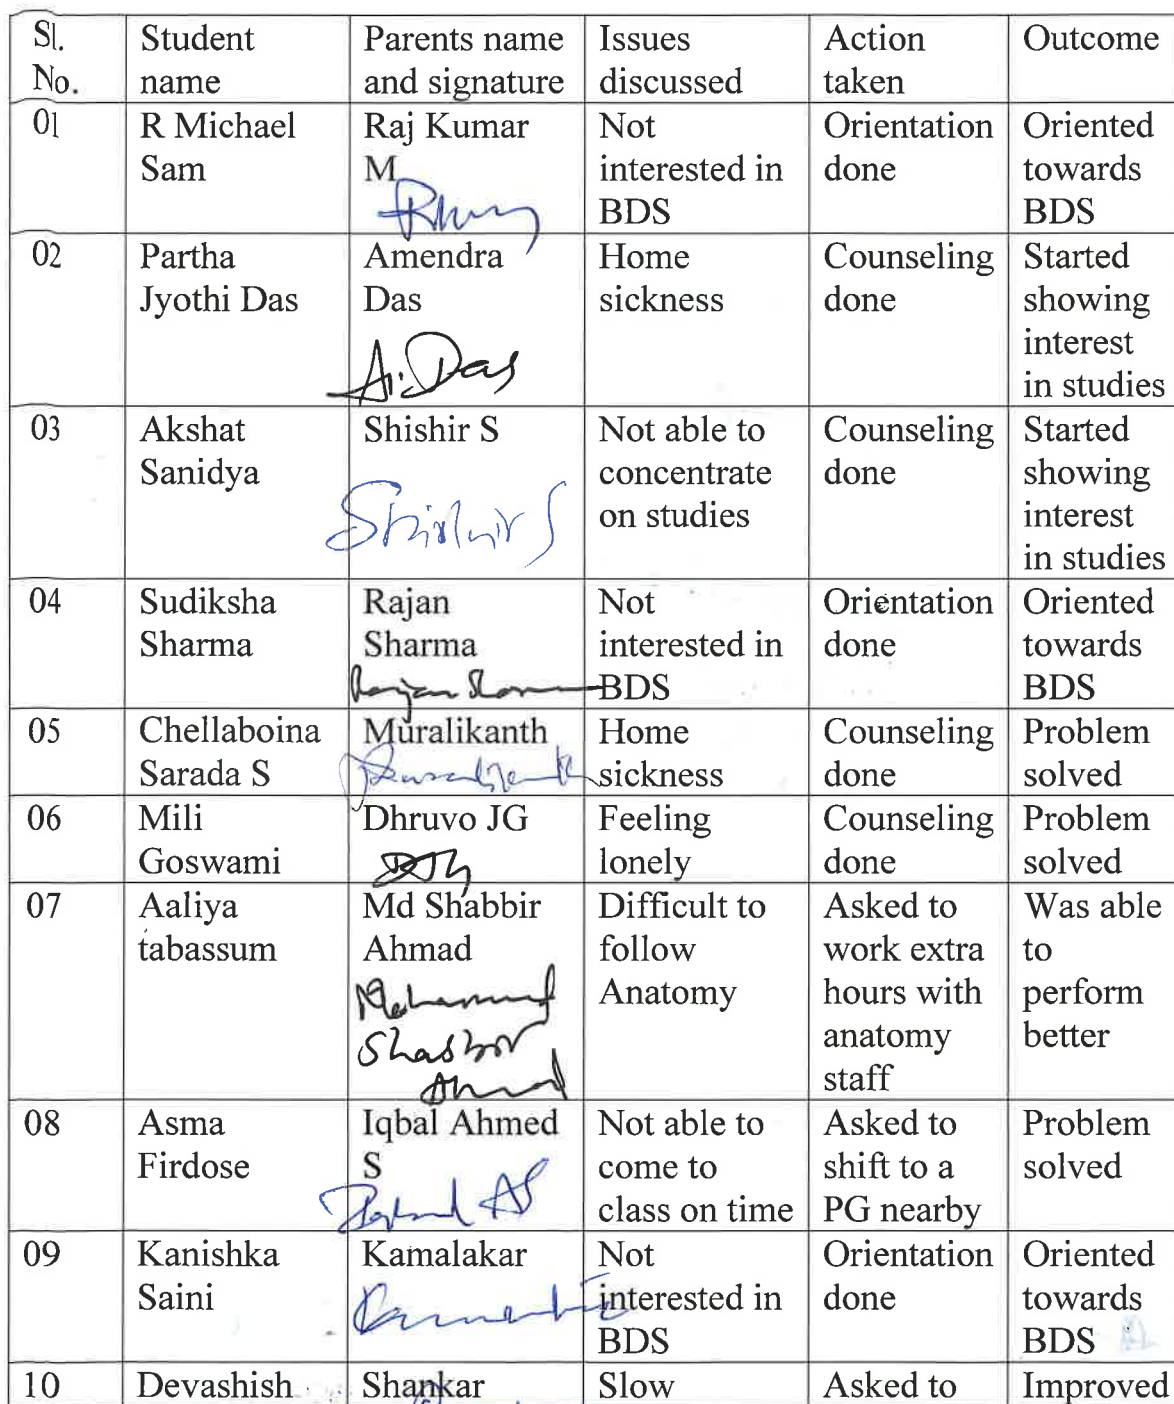 Sl. No. Student name Parents name and signature Issues discussed Action taken Outcome
01 R Michael Sam Raj Kumar M Not interested in BDS Orientation done Oriented towards BDS
02 Partha Jyothi Das Amendra Das A. Das Home sickness Counseling done Started showing interest in studies
03 Akshat Sanidya Shishir S Shishir S Not able to concentrate on studies Counseling done Started showing interest in studies
04 Sudiksha Sharma Rajan Sharma Rajan Sharma Not interested in BDS Orientation done Oriented towards BDS
05 Chellaboina Sarada S Muralikanth Home sickness Counseling done Problem solved
06 Mili Goswami Dhruvo JG Feeling lonely Counseling done Problem solved
07 Aaliya tabassum Md Shabbir Ahmad Mohammad Shabbir Ahmad Difficult to follow Anatomy Asked to work extra hours with anatomy staff Was able to perform better
08 Asma Firdose Iqbal Ahmed S Not able to come to class on time Asked to shift to a PG nearby Problem solved
09 Kanishka Saini Kamalakar Not interested in BDS Orientation done Oriented towards BDS
10 Devashish Shankar Slow Asked to Improved